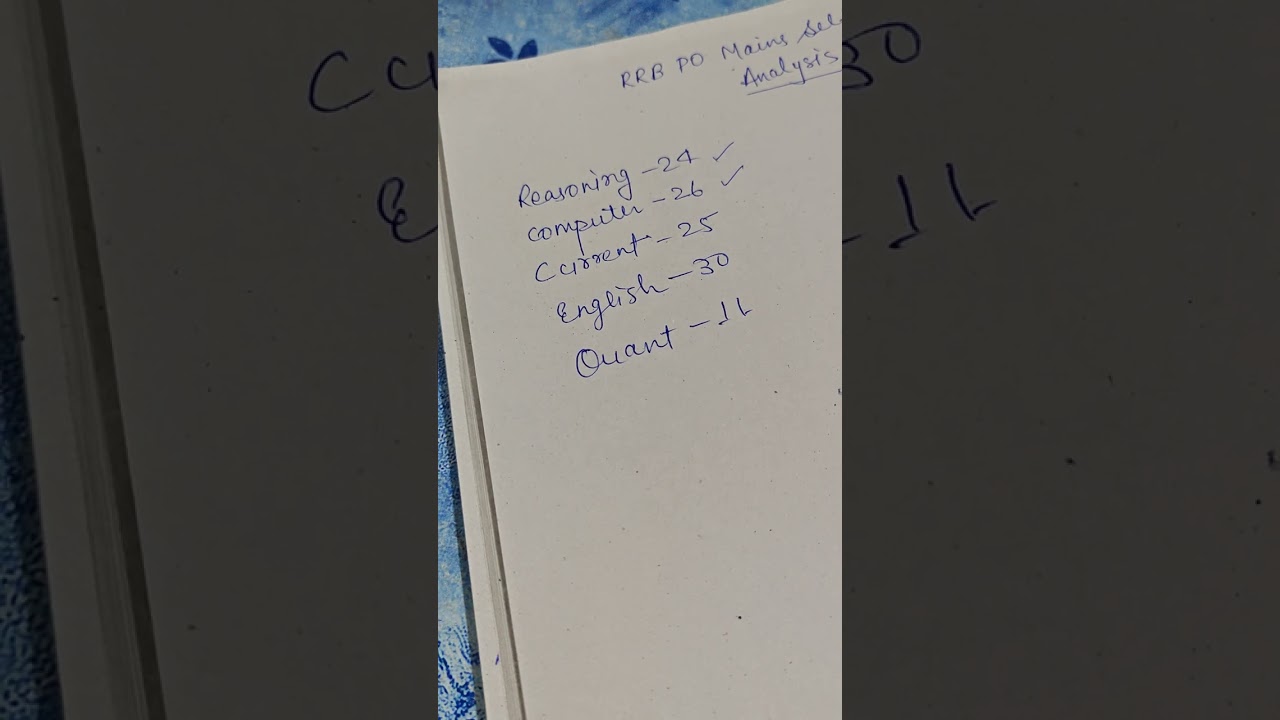 RRB PO Mains Sel
Analysis
Reasoning - 24 ✓
computer - 26 ✓
Current - 25
English - 30
Quant - 11